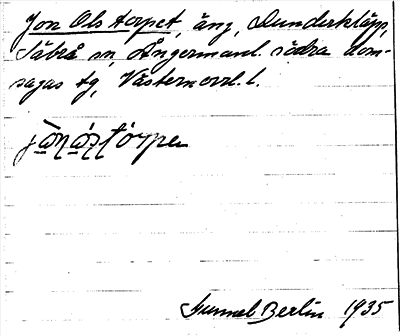 Jon Ols torpet, äng, Dunderkläpp,
Säbrå sn, Ångermanl. södra dom-
sagas tg, Västernorrl. l.
Gunnel Berlin 1935